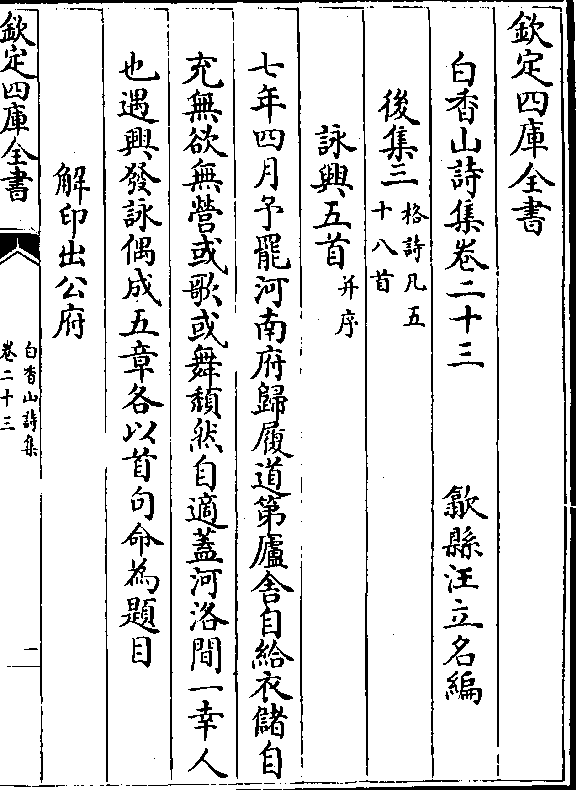 欽定四庫全書
白香山詩集卷二十三 歙縣汪立名編
後集三 格詩凡五十八首
詠興五首 并序
七年四月予罷河南府歸履道第廬舍自給衣儲自
充無欲無營或歌或舞頹然自適蓋河洛間一幸人
也遇興發詠偶成五章各以首句命為題目
解印出公府
欽定四庫全書
白香山詩集
卷二十三
一